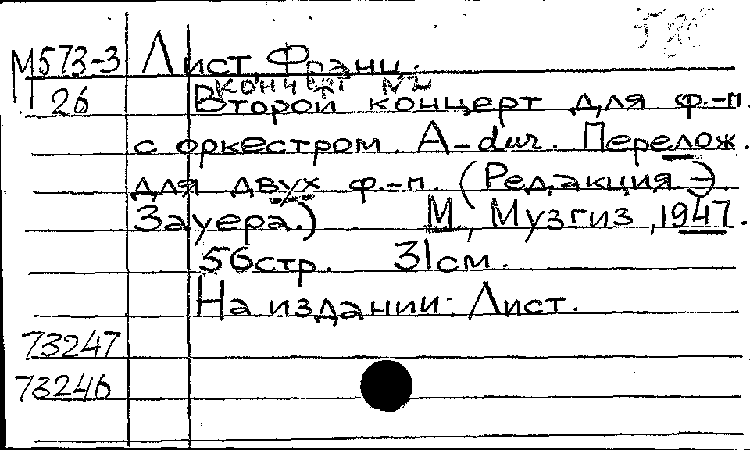 М573-3 Лист, Франц.
Концерт №2
26 Второй концерт для ф.-п.
с оркестром. A-dur. Перелож.
для двух ф.-п. (Редакция -
Зауера.) М, Музгиз, 1947.
56стр. 31см.
На издании: Лист.
73247
73246